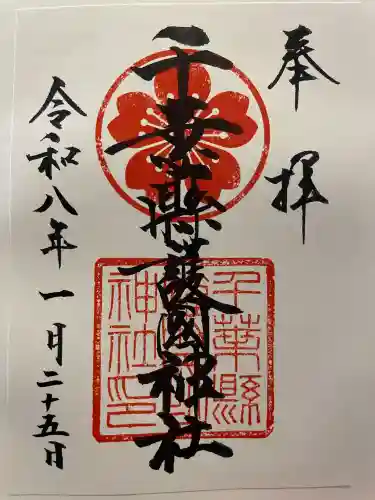 奉拝
千葉縣護國神社
令和八年一月二十五日
千葉縣
神社印